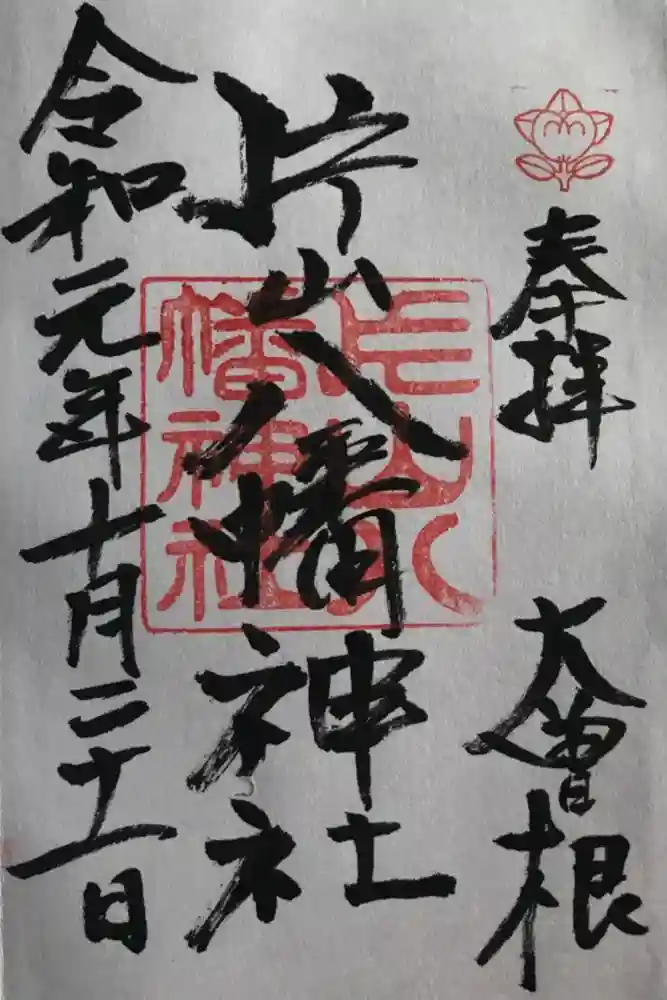 奉拝
大曽根
片山八幡神社
片山八
幡神社
令和元年十月二十一日